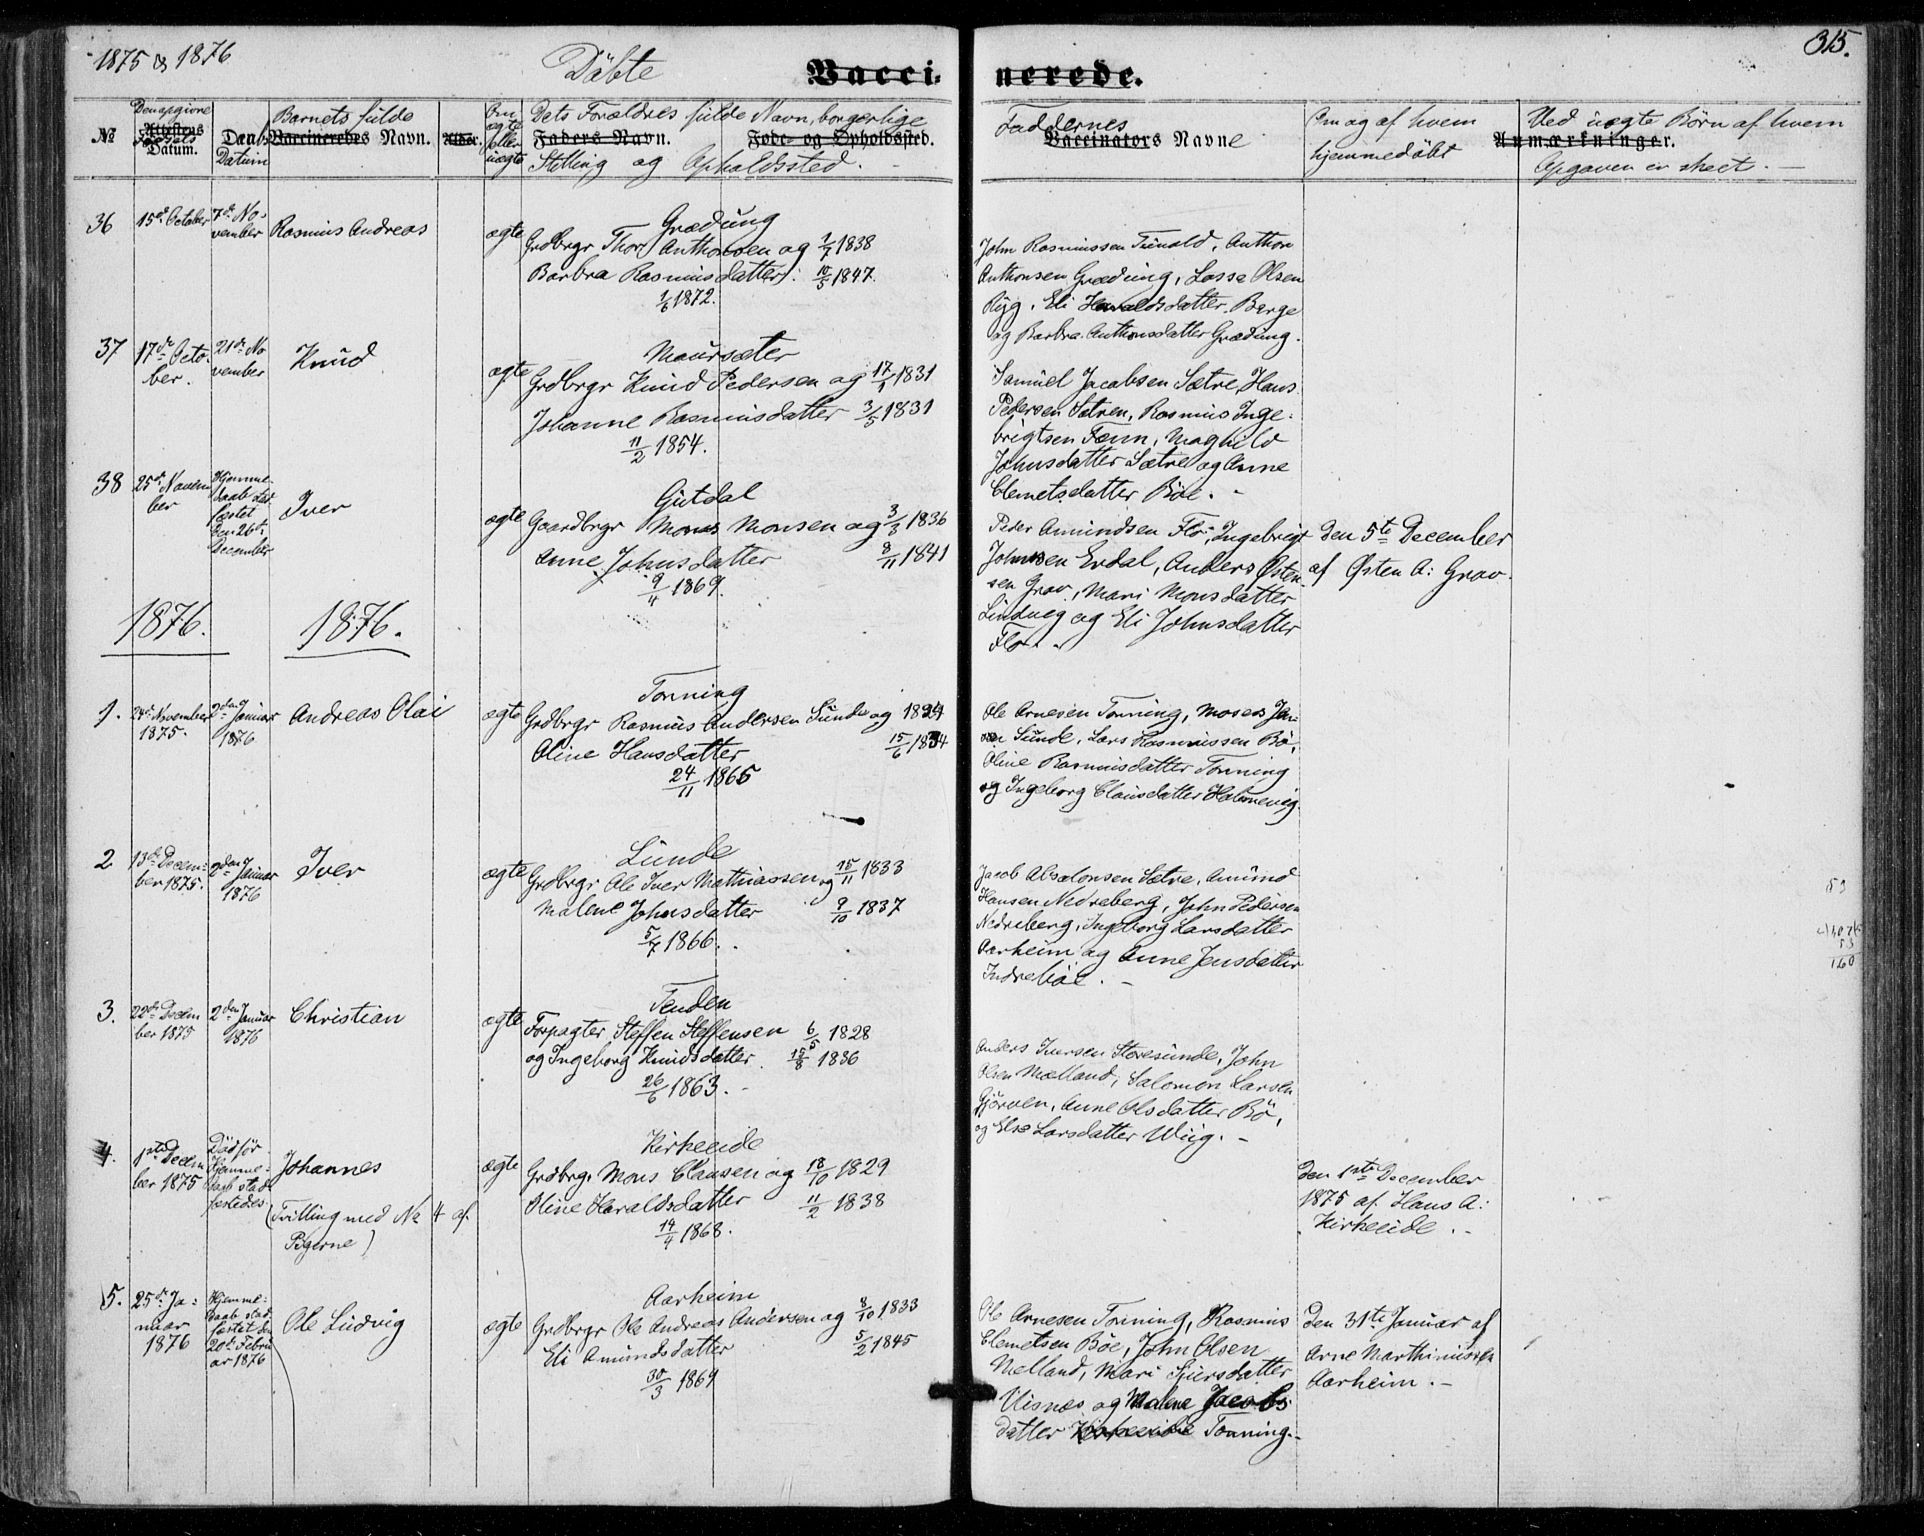 1875 & 1876
Döbte
Vacci-
nerede.
315.
№
Den opgivne
Attestens
Fødsels
Datum.
Daab
Datum
Barnets fulde
Vaccineredes Navn.
Alder.
Om
ægte
eller
uægte
Dets Forældres fulde Navn, borgerlige
Faders Navn.
Føde- og Opholdssted.
Stilling og Opholdssted.
Faddernes
Vaccinators Navne
Om og af hvem
hjemmedøbt
Ved uægte Børn af hvem
Anmærkninger.
Opgaven er skeet. —
36
15de October
7de No-
vember
Rasmus Andreas
ægte
Grædung
Grdbrgr Thor Anthonsen og 1/7 1838
Barbra Rasmusdatter: 10/5 1847.
1/6 1872.
John Rasmussen Tunold, Anthon
Anthonsen Grædung, Lasse Olsen
Ryg, Eli Haraldsdatter Berge
og Barbra Anthonsdatter Grædung.
37
17de Octo-
ber.
21de No
vember
Knud
ægte
Maursæter
Grdbrgr Knud Pedersen og 17/1 1831
Johanne Rasmusdatter 3/5 1831
11/2 1854.
Samuel Jacobsen Sætre, Hans
Pedersen Sætren, Rasmus Inge-
brigtsen Fænn, Maghild
Johnsdatter Sætre og Anne
Clemetsdatter Böe. -
38
25de Novem
ber
Hjemme-
daab stad
fæstet
den 26de
December
Iver
ægte
Gutdal
Gaardbrgr Mons Monsen og 3/3 1836
Anne Johnsdatter 8/11 1841
9/4 1869.
Peder Amundsen Flo, Ingebrigt
Johnsen Erdal, Anders Østen-
sen Grov, Mari Monsdatter
Lindveg og Eli Johnsdatter
Flo. -
den 5te December
af Østen A: Grov.
1876.
1876.
1.
24de November
1875.
2den Januar
1876
Andreas Olai
ægte
Tonning
Grdbrgr Rasmus Andersen Sunde og 1824
Oline Hansdatter 15/6 1834
24/11 1865
Ole Arnesen Tonning, Moses Jen-
sen Sunde, Lars Rasmussen Bö,
Oline Rasmusdatter Tonning
og Ingeborg Clausdatter Hammevig.
2
13de Decem-
ber 1875.
2den Januar
1876
Iver
ægte
Lunde
Grdbrgr Ole Iver Mathiassen og 15/11 1833
Malene Johnsdatter 9/10 1837
5/7 1866.
Jacob Absalonsen Sætre, Amund
Hansen Nedreberg, John Pedersen
Nedreberg, Ingeborg Larsdatter
Aarheim og Anne Jensdatter
Indreböe. —
53
53
160
3.
22de Decem
ber 1875
2den Januar
1876
Christian
ægte
Tenden
Forpagter Steffen Steffensen 6/5 1828
og Ingeborg Knudsdatter. 15/8 1836
26/6 1863. -
Anders Iversen Storesunde, John
Olsen Mælland, Salomon Larsen
Gjörven, Anne Olsdatter Bö,
og Else Larsdatter Wiig. -
4.
1ste Decem
ber 1875
Död för
Hjemme-
daab stad-
fæstedes
Johannes
(Tvilling med № 4 af
Pigerne)
ægte
Kirkeeide
Grdbrg. Mons Clausen og 18/10 1829
Oline Haraldsdatter 11/2 1838
19/4 1868.
den 1ste December
1875 af Hans A:
Kirkeeide. -
5.
25de Ja-
nuar
1876
Hjemme-
daab stad-
fæstet den
20de Febru
ar 1876
Ole Ludvig
ægte
Aarheim
Grdbrgr Ole Andreas Andersen og 8/10 1833
Eli Amundsdatter 5/2 1845
30/3 1869
Ole Arnesen Tonning, Rasmus
Clemetsen Böe, John Olsen
Melland, Mari Sjursdatter
Visnæs og Malene Jacobs-
datter Kirkeeide Tonning. -
den 31te Januar af
Arne Marthinussen
Aarheim. -